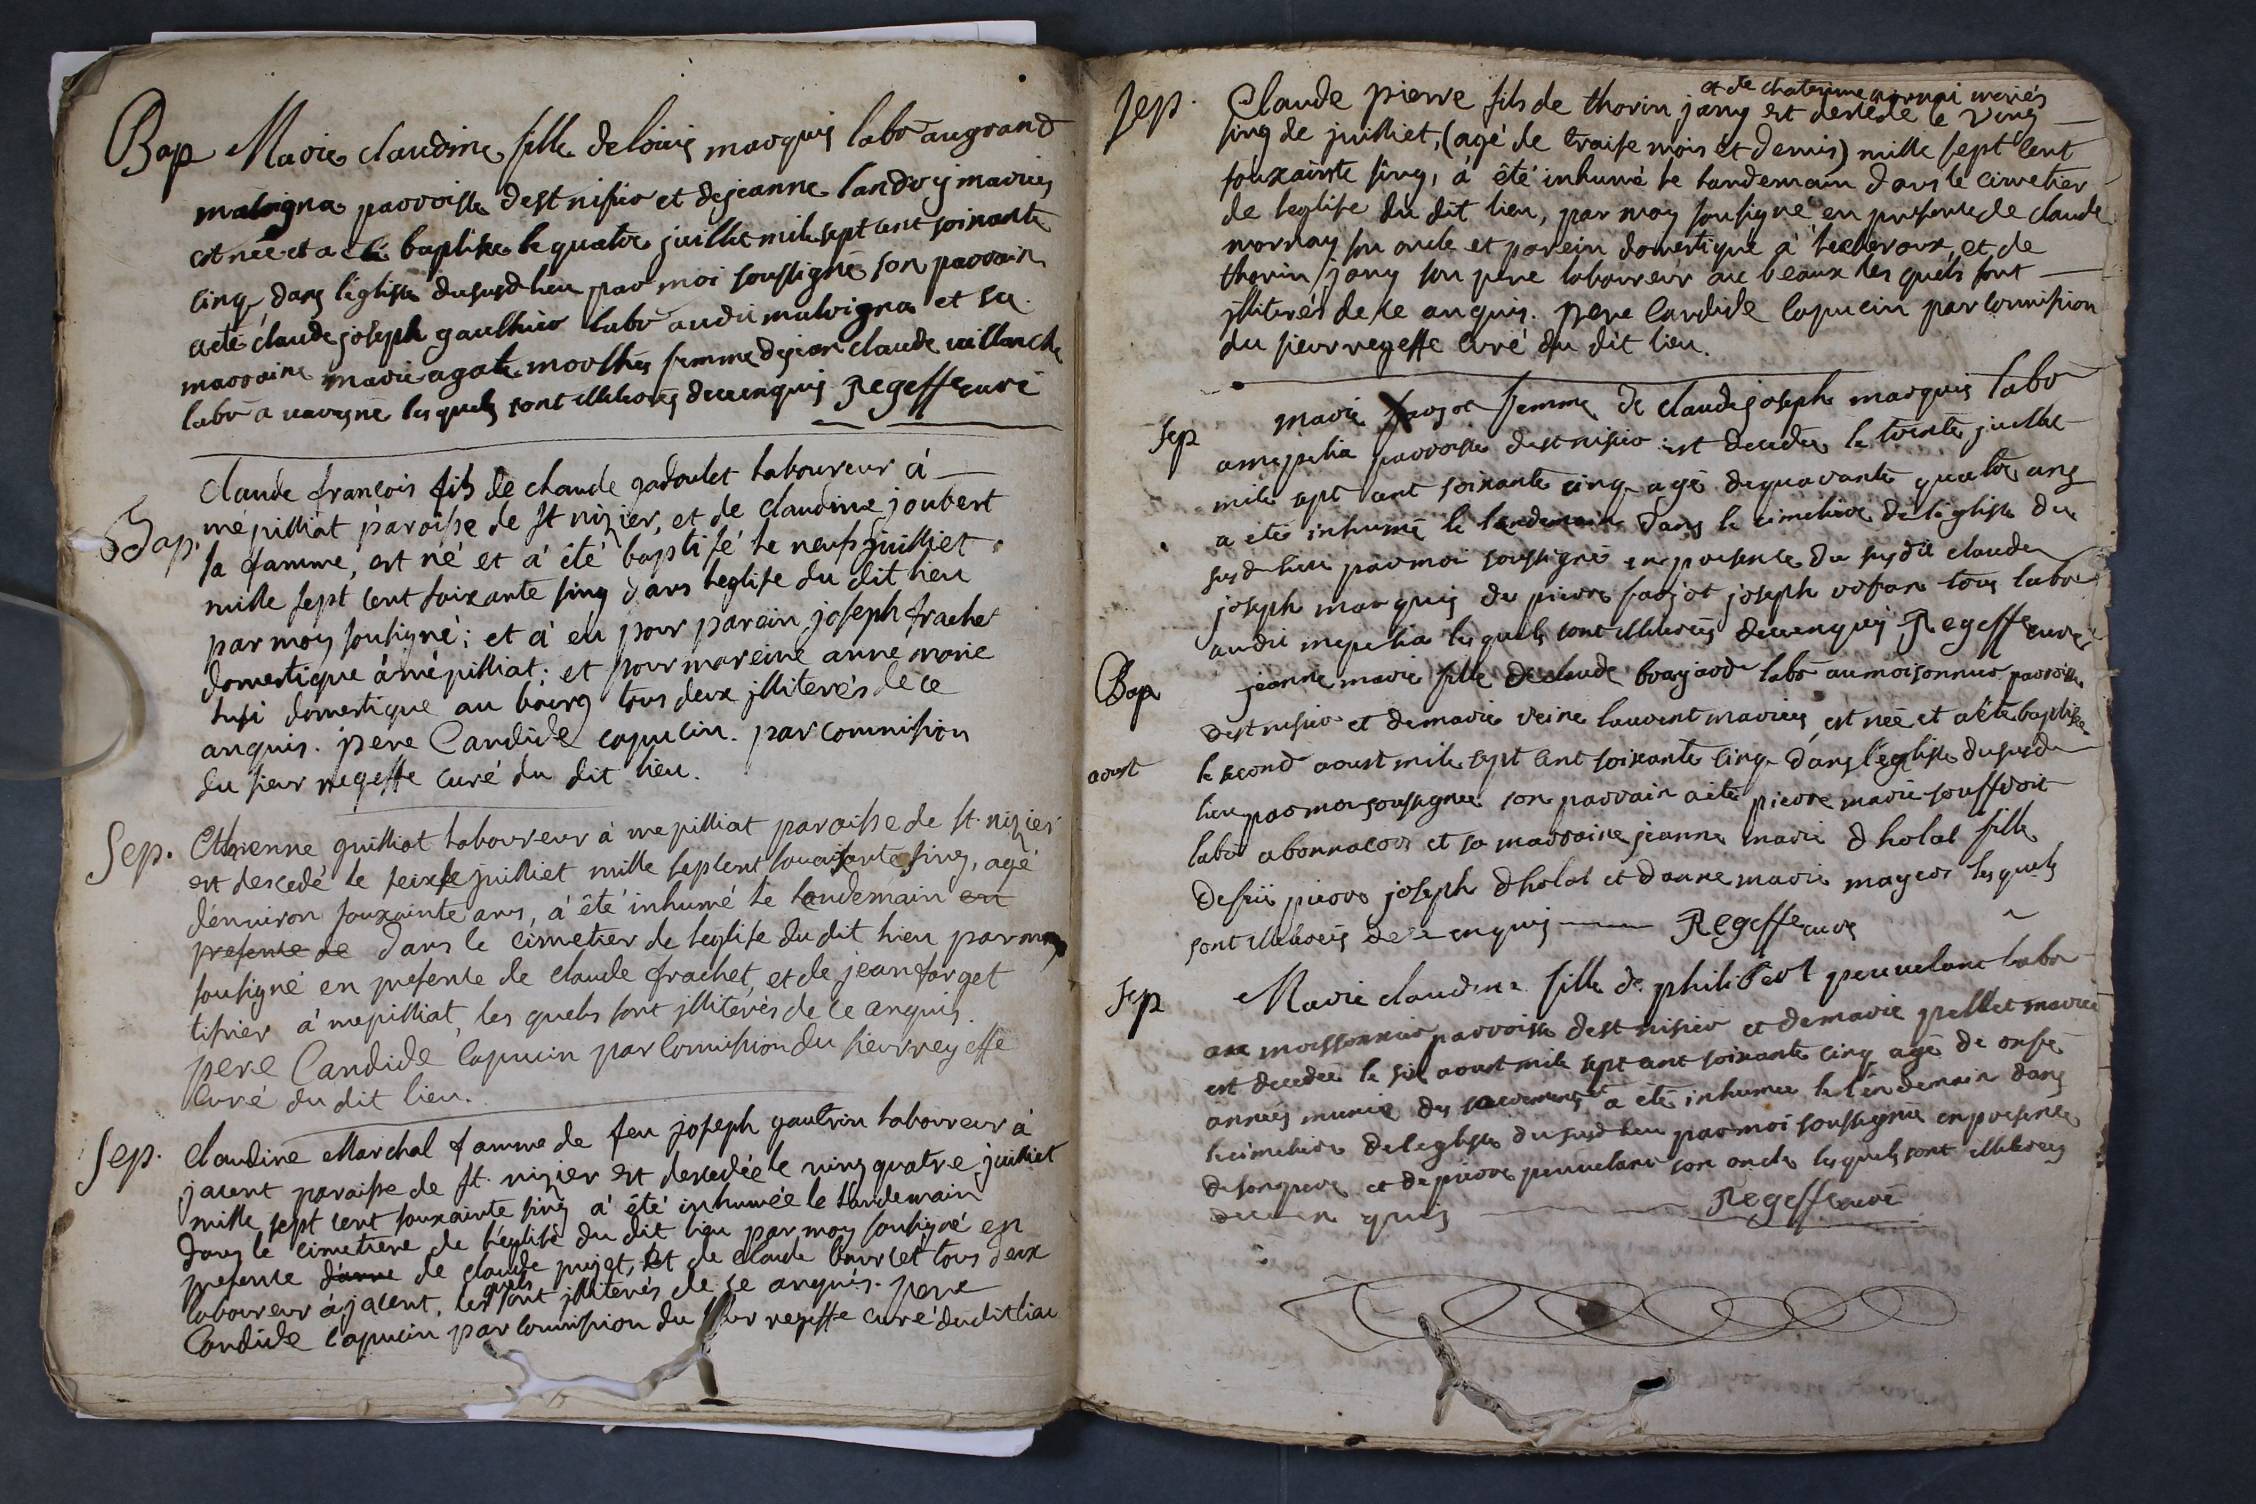 Bap Marie claudine fille de loüis marquis labo~ au grand
malvigna parroisse de st nisier et de jeanne landry mariés
est née et a été baptisée le quatre juillet mile sept cent soixante
cinq dans l'eglise du susd lieu par moi soussigné son parrain
a été claude joseph gauthier labo~ audit malvigna et sa
marraine marie agate morthés femme de jean claude vaillanche
labo~ a vavagne lesquels sont illiterés de ce enquis Regeffe curé
Claude françois fils de claude gadoulet laboureur á
Bap. mépilliat paroisse de st nizier, et de claudine joubert
sa famme, est né et a été baptisé le neuf juilliet
mille sept cent soixante sinq dans l'eglise du dit lieu
par moy sousigné; et a eu pour parein joseph frachet
domestique á mépilliat; et pour mareine anne marie
tusi domestique au bourg tous deux illiterés de ce
anquis. pere Candide capucin. par commision
du sieur regeffe curé du dit lieu.
Sep. Ethienne guilliat laboureur à mepilliat paroisse de st. nizier
est descedé le seixse juilliet mille septcent souaixante sinq, agé
d'environ souxainte ans, a été inhumé le landemain en
presente de dans le cimetier de l'eglise du dit lieu par moy
sousigné en presente de claude frachet, et de jean forget
tissier a mepilliat, les quels sont illiterés de ce anquis.
pere Candide Capucin par Comission du sieur regeffe
Curé du dit lieu.
Sep. Claudine Marchal famme de feu joseph gautrin laboureur à
jacent paroisse de st. nizier est descedée le vinq quatre juilliet
mille sept cent souxainte sinq a été inhumée le landemain
dans le cimetiere de l'eglise du dit lieu par moy sousigné en
presente d'anne de claude pujet, et de claude bourcet tous deux
laboureur á jacent, les quels sont illiterés de ce anquis. pere
Candide Capucin par Commision du sieur regeffe curé du dit lieu
Sep. Claude pierre fils de thorin jany et de chaterinne nornai mariés est descedé le vinq
sinq de juilliet, (agé de traise mois et demis) mille sept cent
souxainte sinq, a été inhumé le landemain dans le cimetier
de l'eglise du dit lieu, par moy sousigné en presente de claude
nornay son oncle et parein domestique à lecheroux, et de
thorin jany son pere laboureur au beaux les quels sont
illiterés de ce anquis. pere Candide Capucin par Commision
du sieur regeffe Curé du dit lieu.
Sep marie farjot femme de claude joseph marquis labo~
a mepelia parroisse de st nisier est decedée le trente juillet
mile sept cent soixante cinq agé de quarante quatre ans
a été inhumé le landemain dans le cimetiere de l'eglise du
susd lieu par moi soussigné en presence du susdit claude
joseph marquis de pierre farjot joseph tous labo~
audit mepelia lesquels sont illiterés de ce enquis Regeffe curé
Bap jeanne marie fille de claude brayard labo~ au moisonnier parroisse
de st nisier et de marie reine laurent mariés est née et a été baptisée
aoust le second aoust mile sept cent soixante cinq dans l'eglise du susd
lieu par moi soussigné son parrain a été pierre marie souffroit
labo~ a bonnacour et sa marraine jeanne marie dholat fille
de feü pierre joseph dholat et d'anne marie mayer lesquels
sont illiterés de ce enquis Regeffe curé
Sep Marie claudine fille de philibert peuvelant labo~
au moissonnier parroisse de st nisier et de marie pellet mariés
est decedée le six aoust mile sept cent soixante cinq agé de onse
années munie des sacrements a été inhumée le lendemain dans
le cimetiere de l'eglise du susd lieu par moi soussigné en presence
de son pere et de pierre peuvelant son oncle lesquels sont illiterés
de ce en quis Regeffe curé